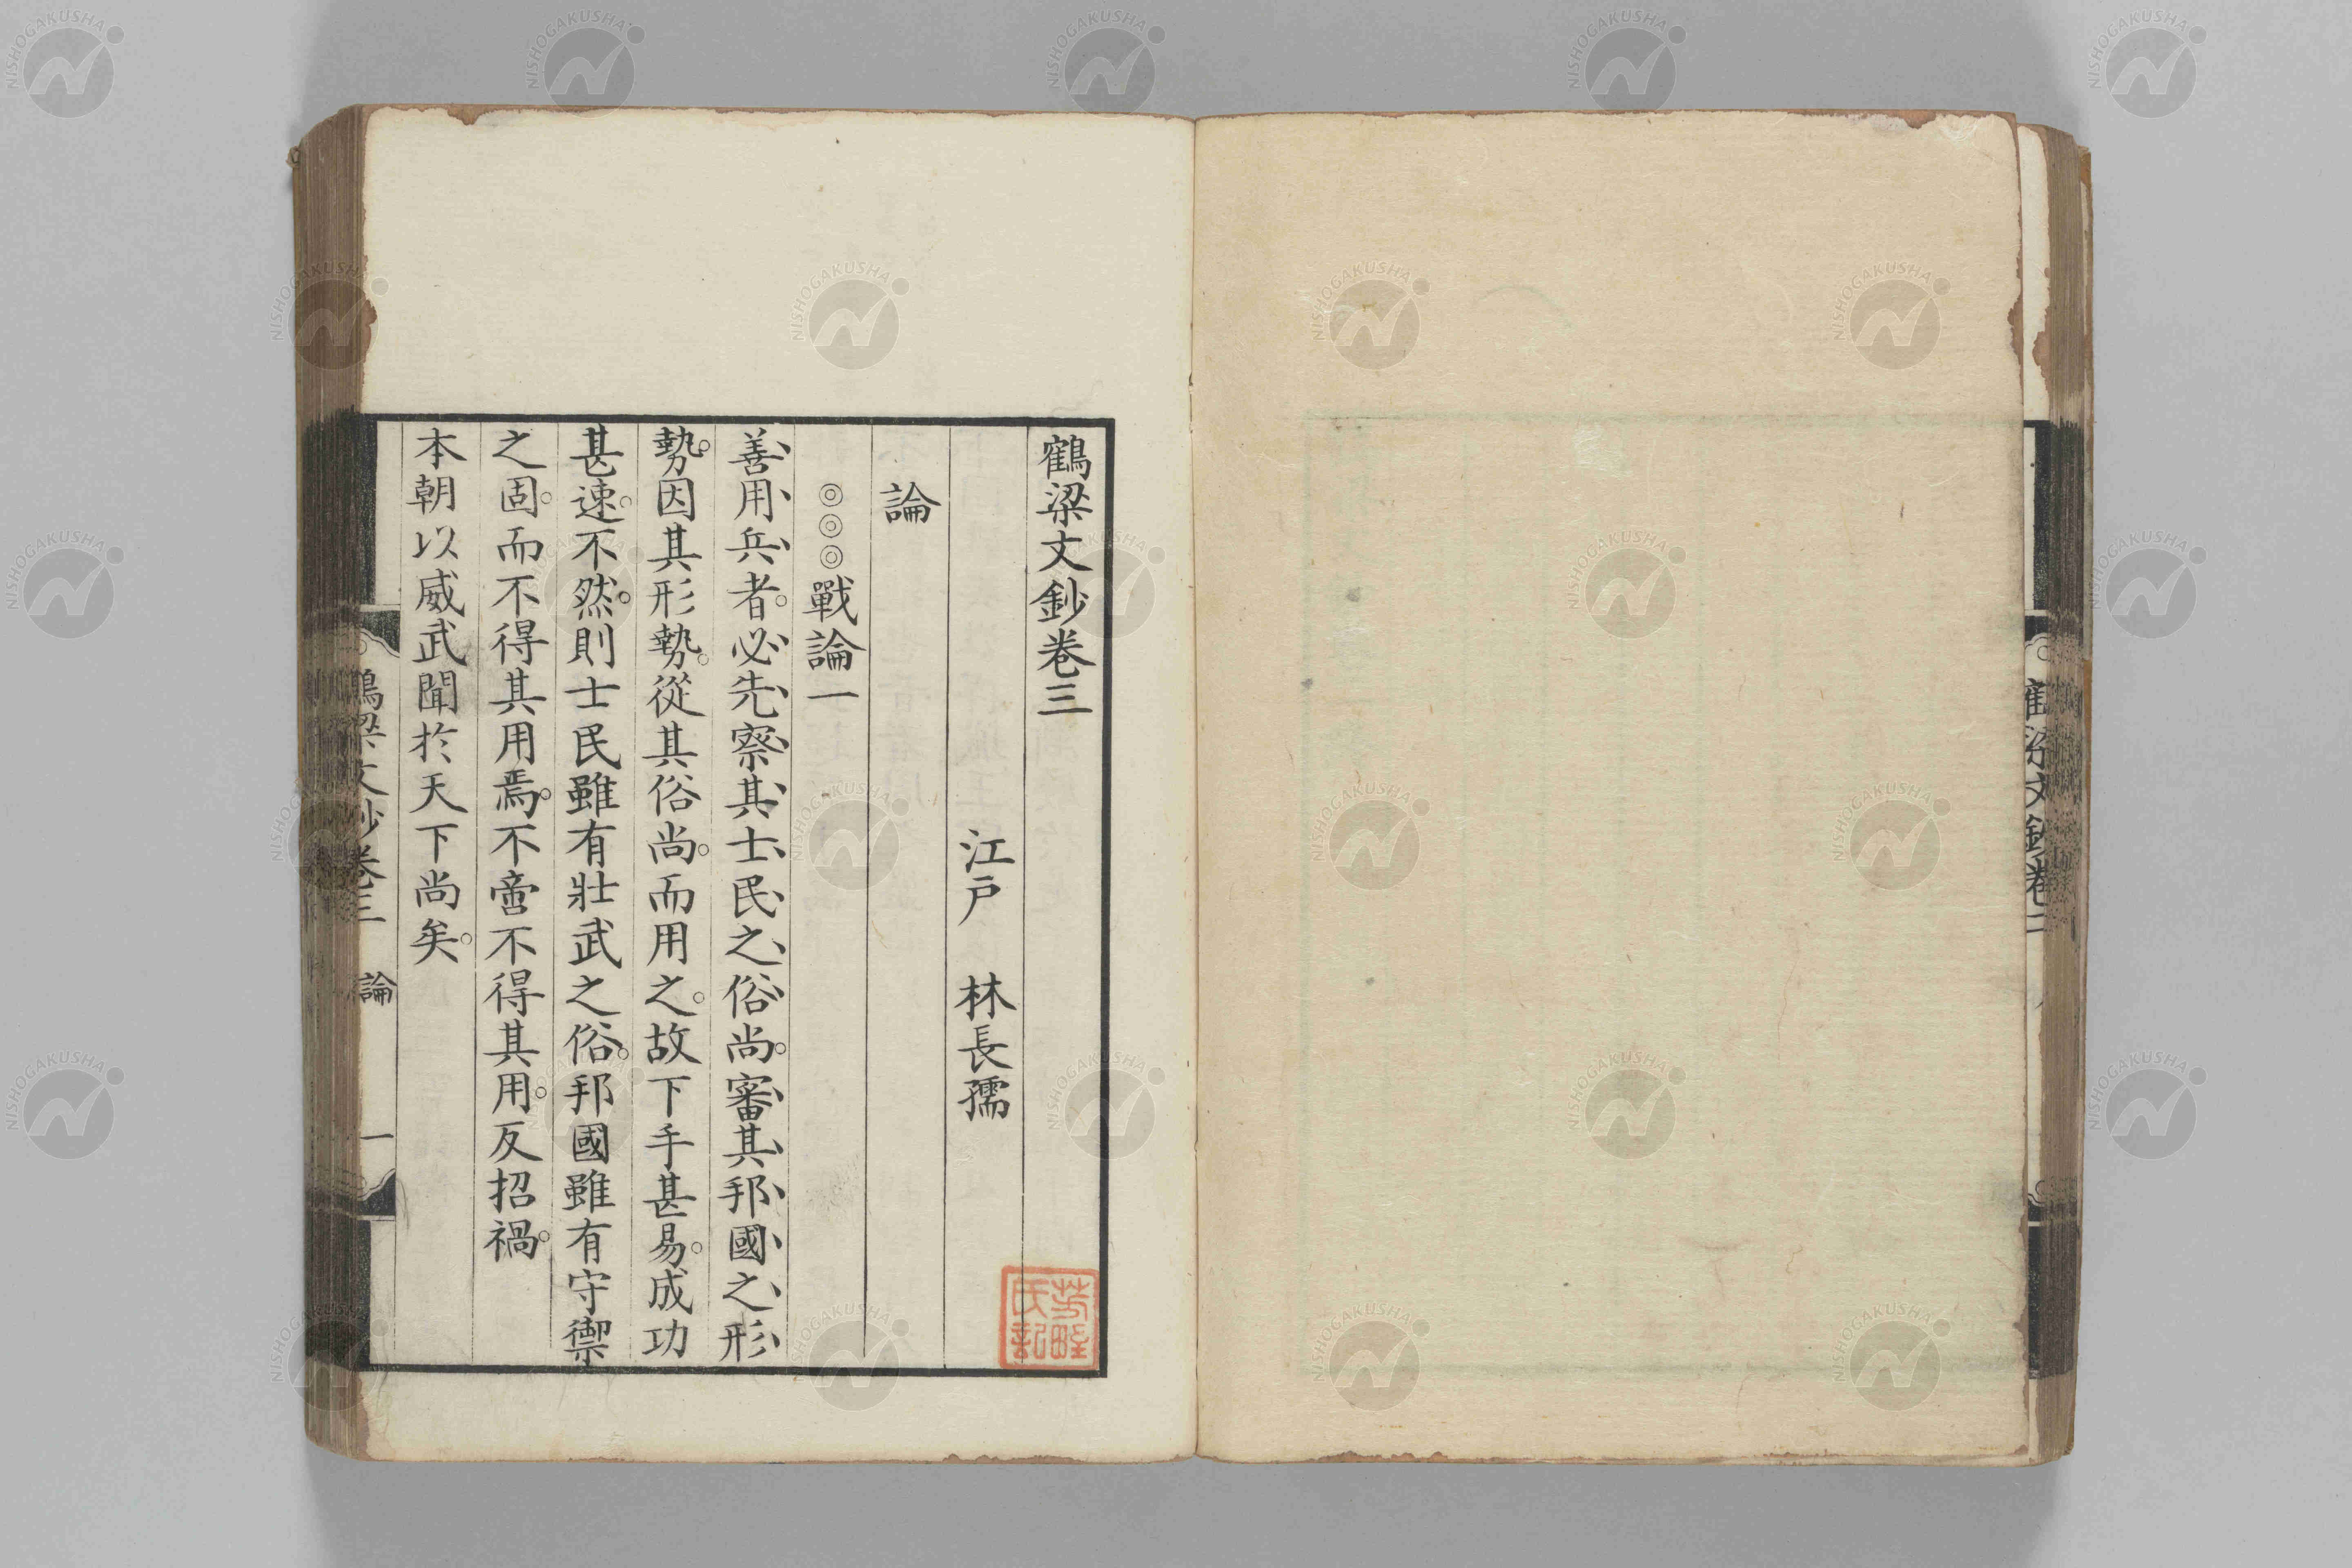 鶴梁文鈔卷三
江戶 林長孺
論
◎◎◎戰論一
善、用、兵、者。必、先、察、其、士、民、之、俗、尚。審、其、邦、國、之、形、
勢。因其形勢。從其俗尚。而用之。故下手甚易。成功
甚速。不然。則士民雖有壯武之俗。邦國雖有守禦
之固。而不得其用焉。不啻不得其用。反招禍。
本朝以威武聞於天下尚矣。
鶴梁文鈔卷三 論 一
NISHOGAKUSHA